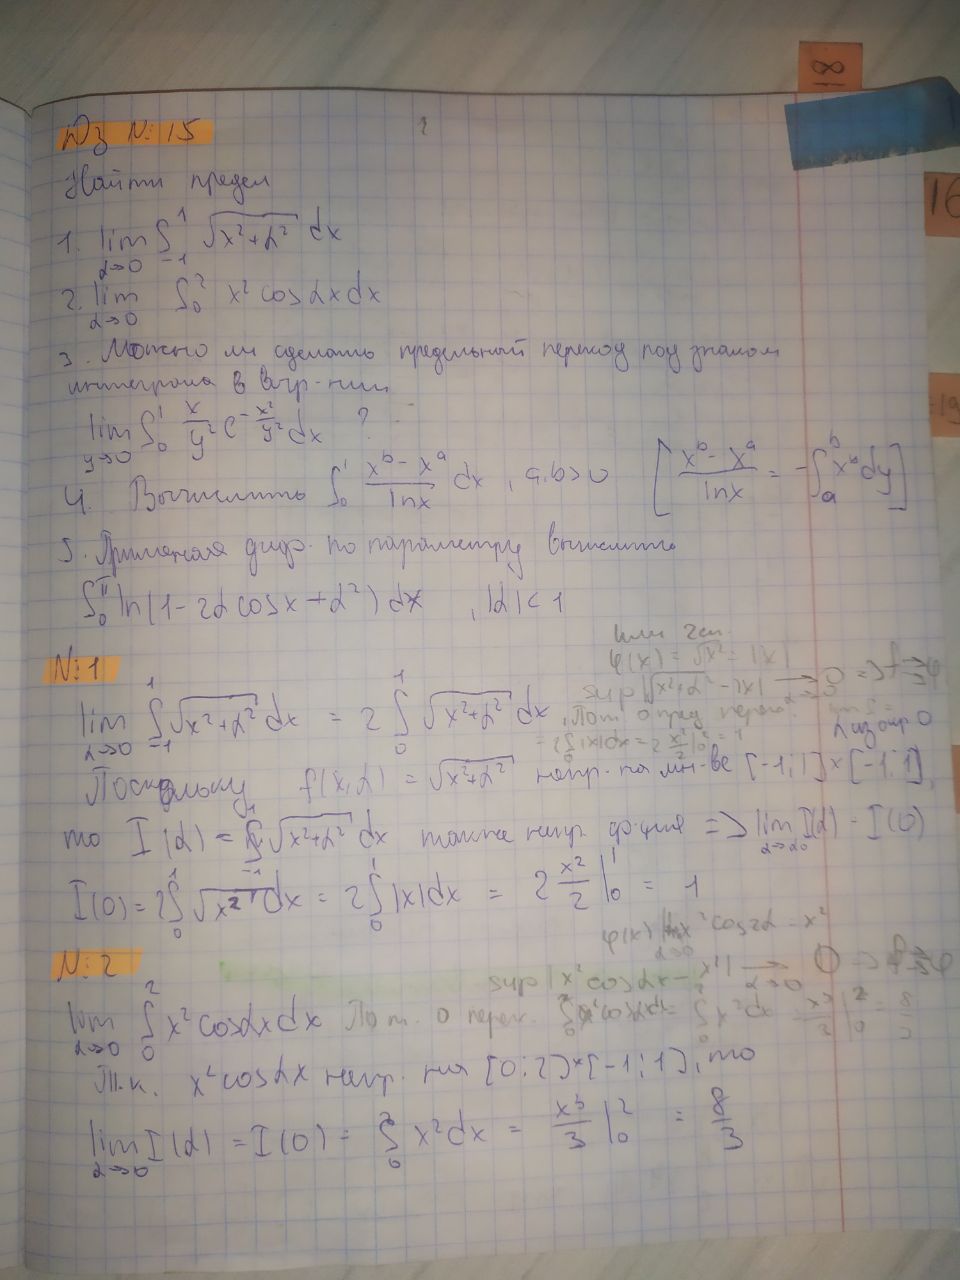 ∞
Дз №15
Найти предел
1. lim α→0 ∫₋₁¹ √(x²+α²) dx
2. lim α→0 ∫₀² x² cos αx dx
3. Можно ли сделать предельный переход под знаком
интеграла в выр-нии
lim y→0 ∫₀¹ x/y² e^(-x²/y²) dx ?
4. Вычислить ∫₀¹ (x^b - x^a)/ln x dx, a,b>0 [(x^b - x^a)/ln x = -∫ₐᵇ x^y dy]
5. Применяя диф. по параметру вычислить
∫₀^π ln(1-2α cos x+α²) dx, |α|<1
16
19
Или 2сп.
φ(x) = √x² = |x|
sup |√(x²+α²) - |x|| → 0 α→0 => f⇉φ
№1
lim α→0 ∫₋₁¹ √(x²+α²) dx = 2 ∫₀¹ √(x²+α²) dx,
По т. о пред. перех.
α из окр. 0
= 2∫₀¹ |x|dx = 2 x²/2 |₀¹ = 1
Поскольку f(x,α) = √(x²+α²) непр. на мн-ве [-1;1]×[-1;1],
то I(α) = ∫₋₁¹ √(x²+α²) dx также непр. ф-ция => lim α→α₀ I(α) = I(0)
I(0) = 2∫₀¹ √x² dx = 2∫₀¹ |x|dx = 2 x²/2 |₀¹ = 1
№2
φ(x) lim α→0 x² cos xα = x²
sup |x² cos αx - x²| → 0 α→0 => f⇉φ
lim α→0 ∫₀² x² cos αx dx По т. о перех. ∫₀² x² cos αx dx = ∫₀² x² dx = x³/3 |₀² = 8/3
Т.к. x² cos αx непр. на [0;2]×[-1;1], то
lim α→0 I(α) = I(0) = ∫₀² x² dx = x³/3 |₀² = 8/3